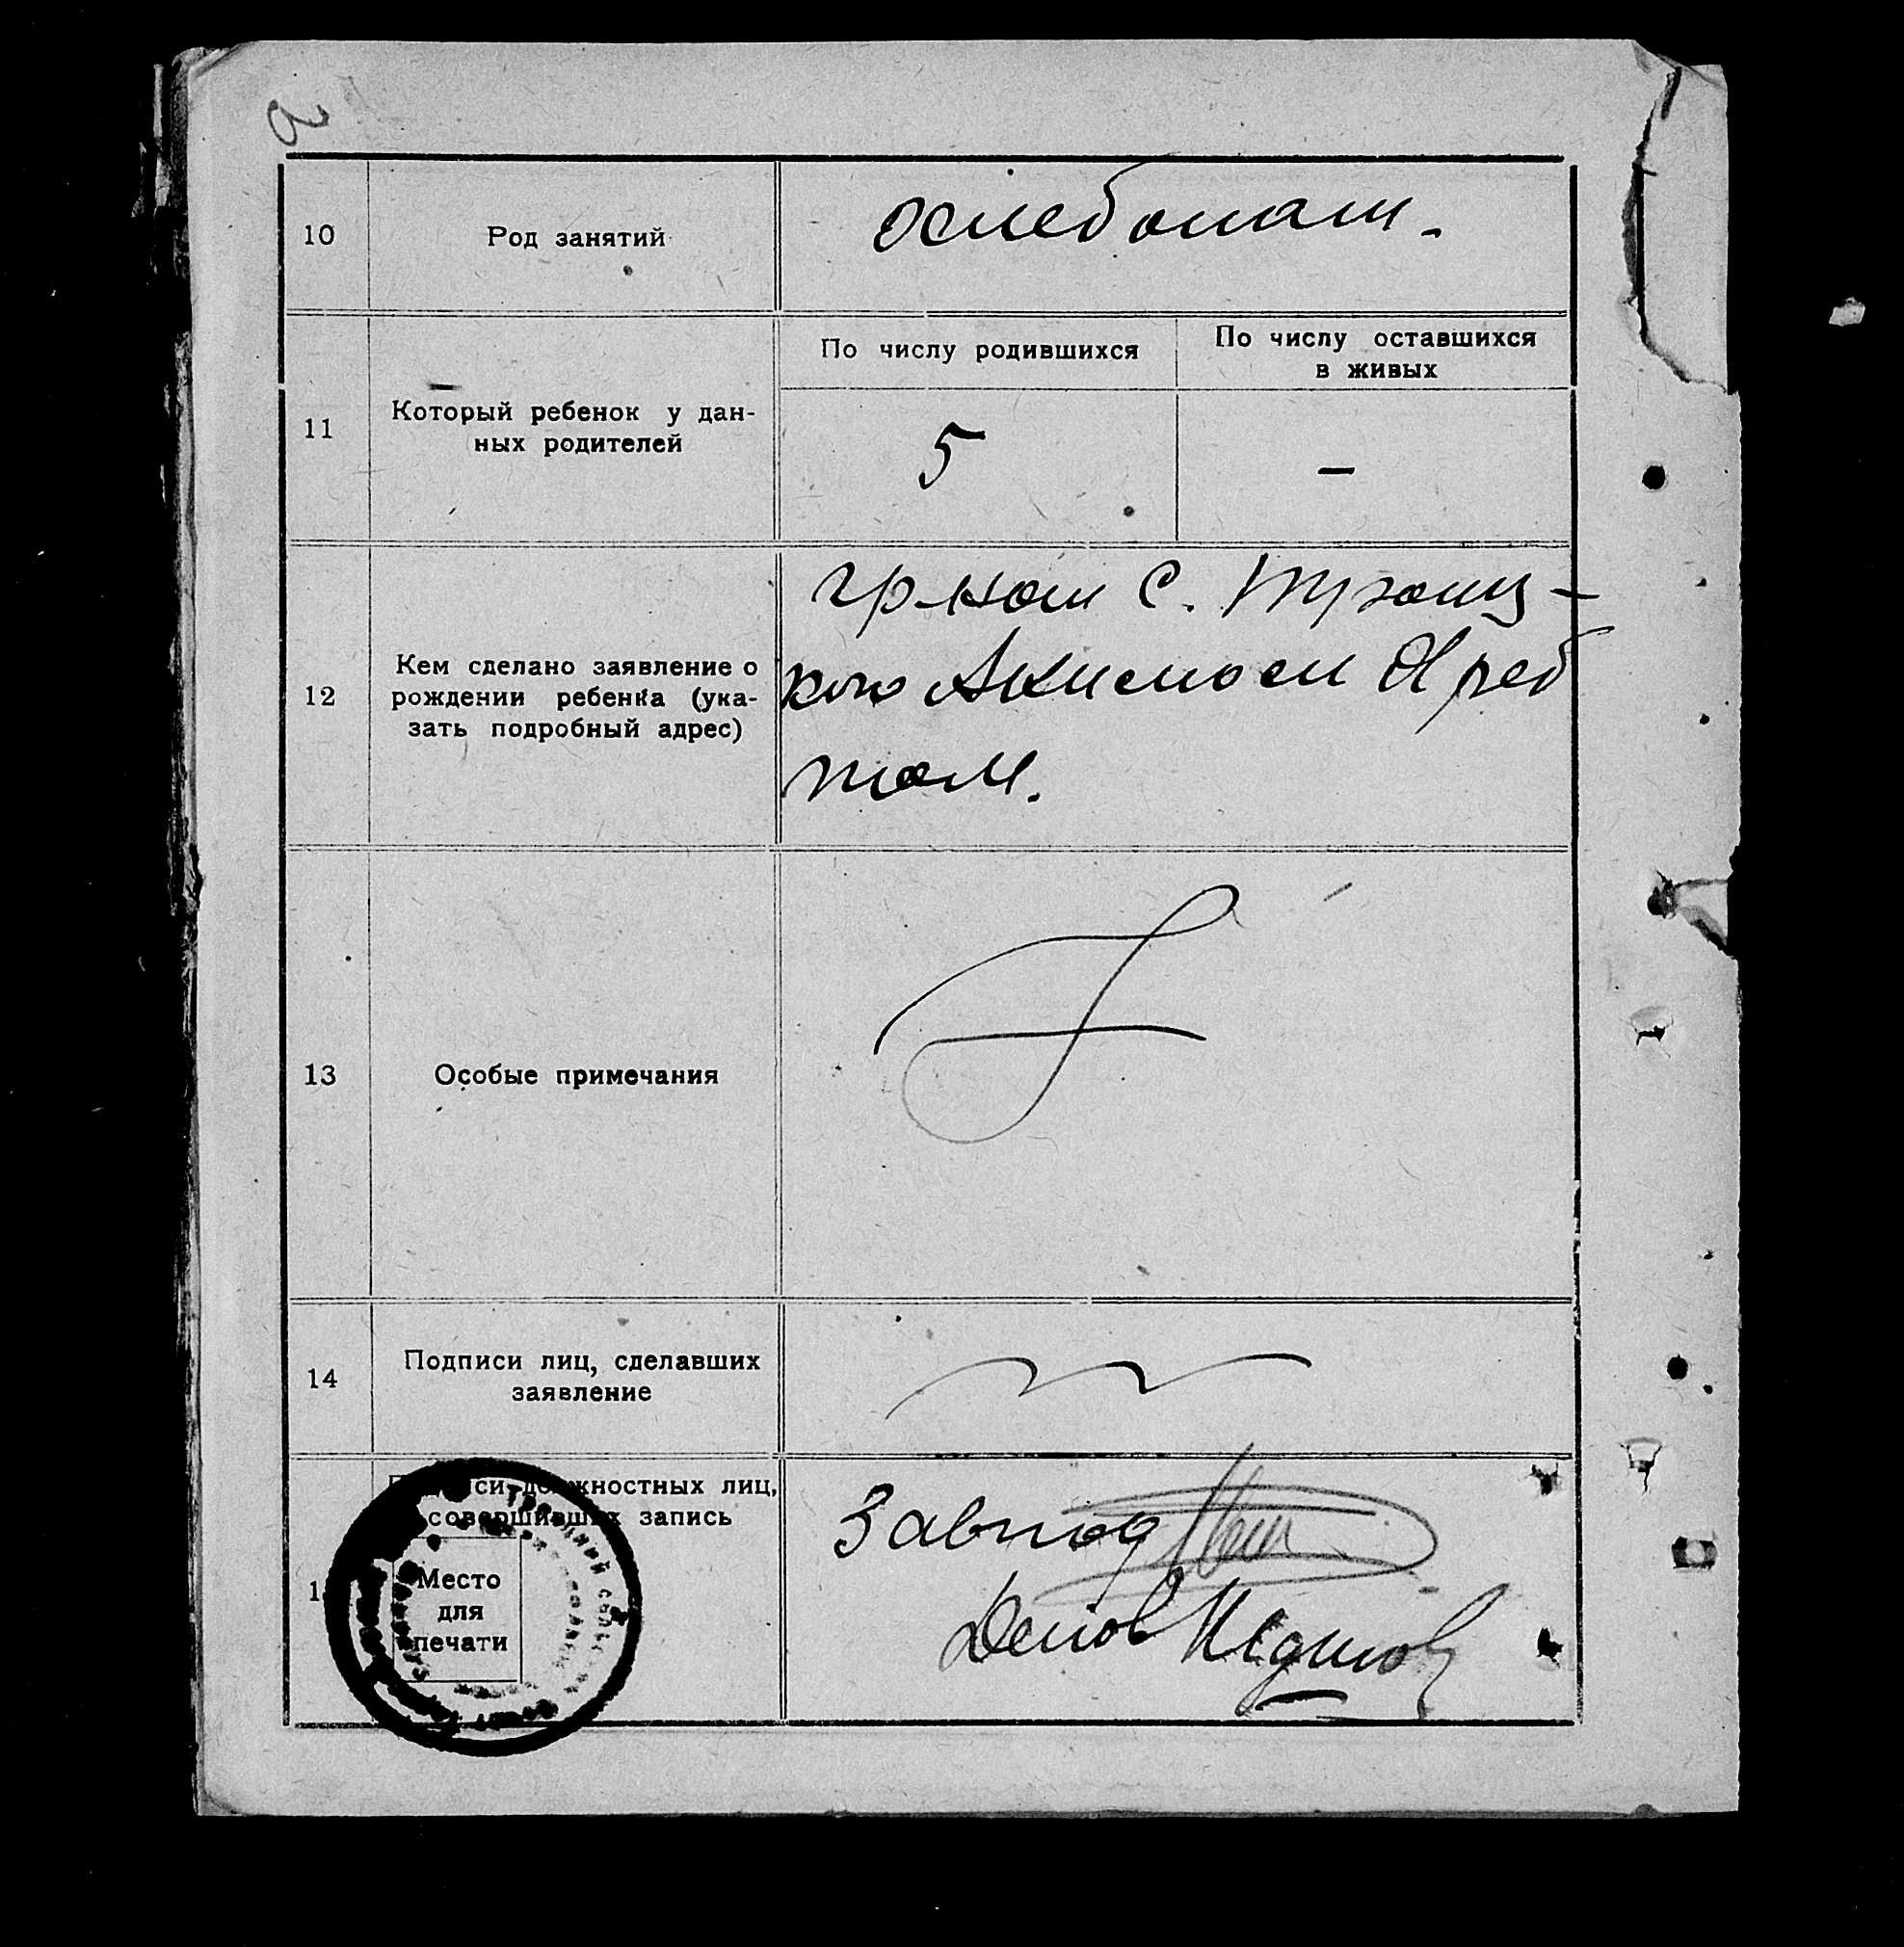 10
Род занятий
хлебопаш.
11
Который ребенок у дан-
ных родителей
По числу родившихся
По числу оставшихся
в живых
5
–
12
Кем сделано заявление о
рождении ребенка (ука-
зать подробный адрес)
гр-ном С. Троиц-
кого Акимом Хреб
том.
13
Особые примечания
14
Подписи лиц, сделавших
заявление
должностных лиц,
совершивших запись
Место
для
печати
Завпод
Делов